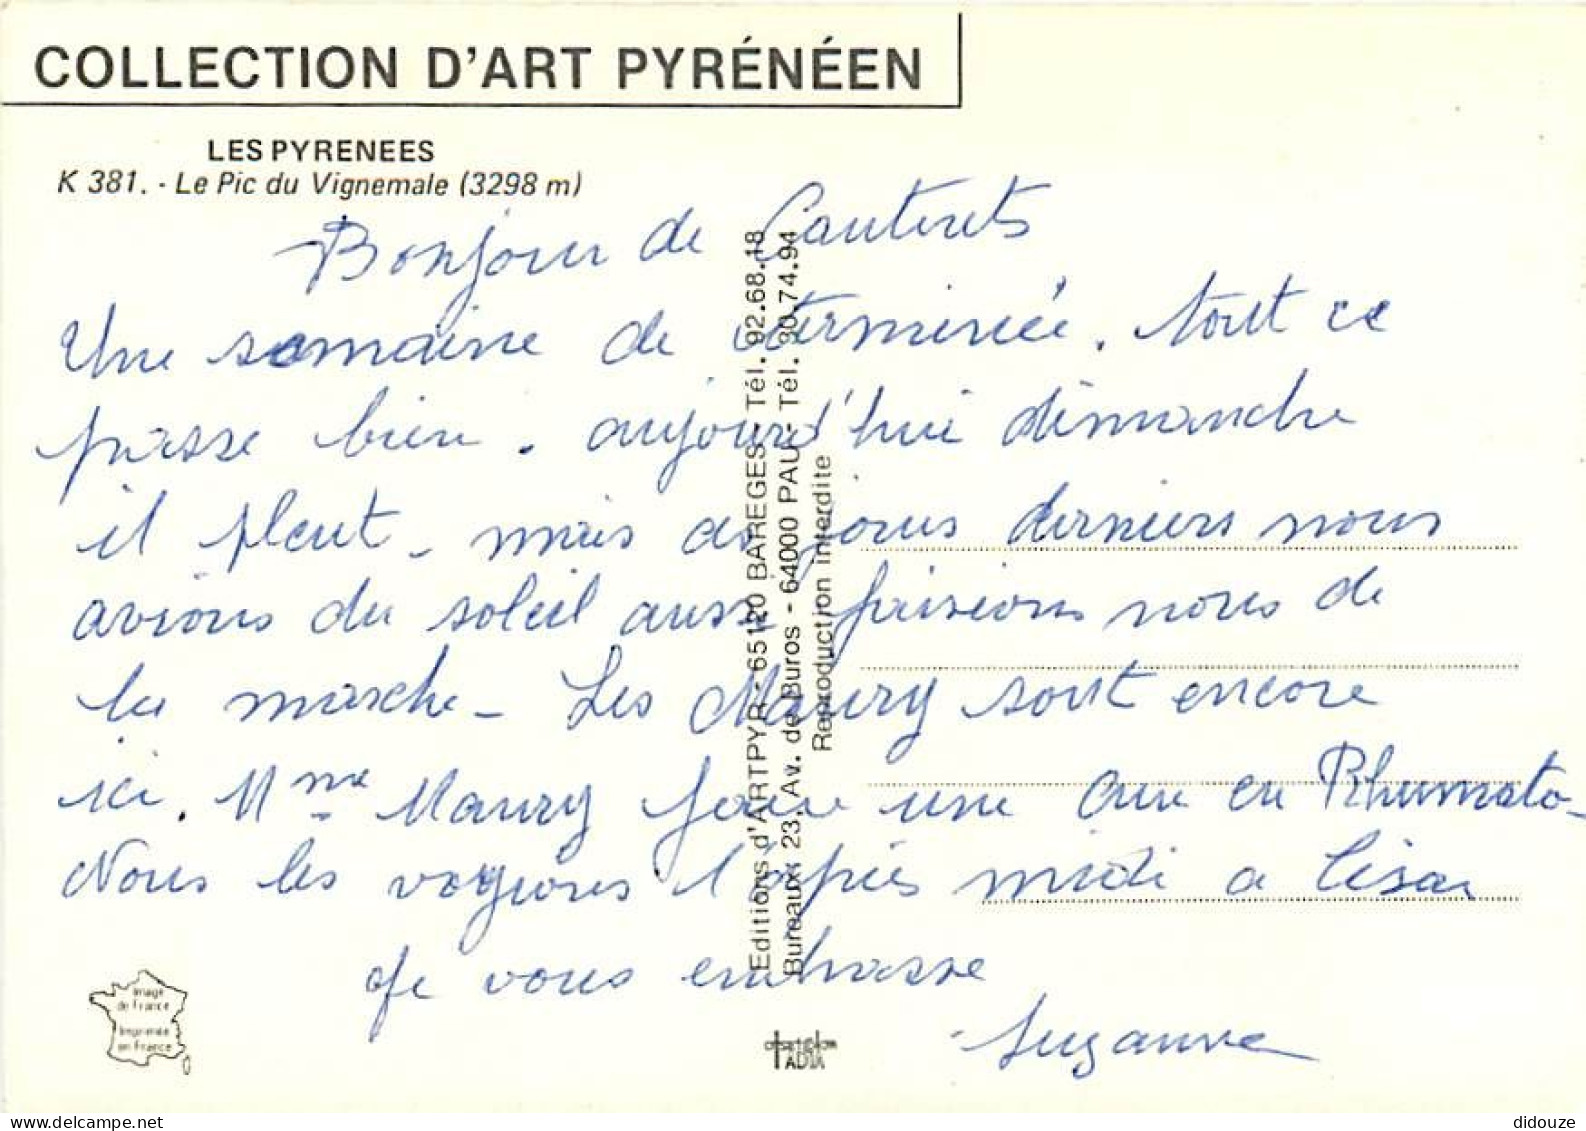 COLLECTION D'ART PYRÉNÉEN
LES PYRENEES
K 381. - Le Pic du Vignemale (3298 m)
Bonjour de Cauterets
Une semaine de terminée. tout ce
passe bien. aujourd'hui dimanche
il pleut - mais ces jours derniers nous
avions du soleil aussi faisions nous de
la marche - Les Maury sont encore
ici. Mme Maury faire une cure en Rhumato-
Nous les voyions l'après midi a César
Je vous embrasse
Suzanne
Editions d'ARTPYR - 65120 BAREGES - Tél. 92.68.18
Bureaux: 23, Av. de Buros - 64000 PAU - Tél. 30.74.94
Reproduction interdite
Image
de France
Imprimée
en France
didouze